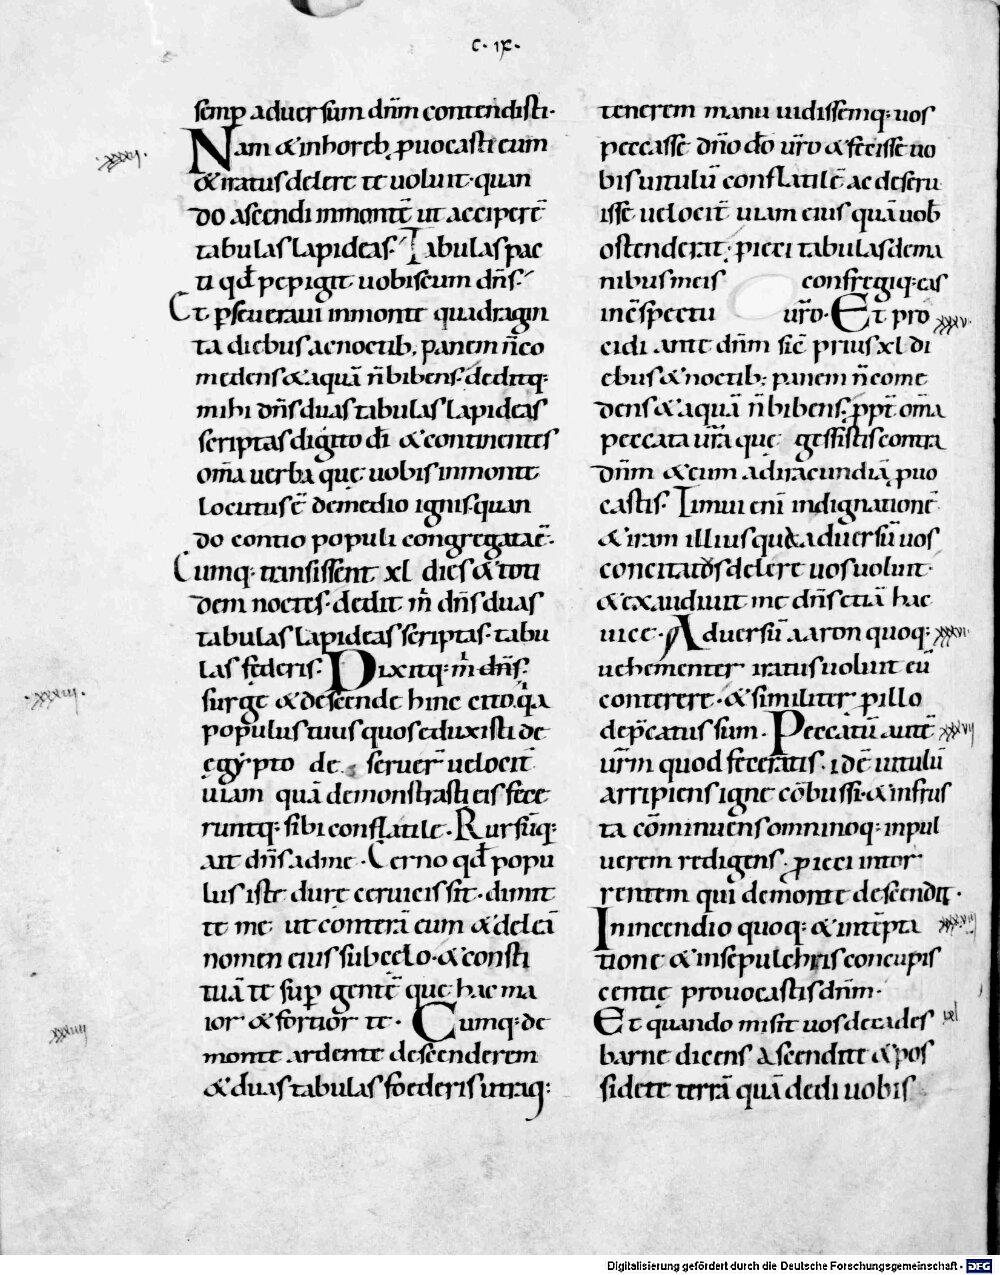 c. ix.
semp aduersum dn̄m contendisti.
.xxxii.
Nam & inhoreb puocasti eum
& iratus delere te uoluit. quan
do ascendi inmontē ut acciperē
tabulas lapideas. Tabulas pac
ti qđ pepigit uobiscum dn̄s.
Et pseueraui inmonte quadragin
ta diebus ac noctib; panem n̄ co
medens & aquā n̄ bibens. deditq;
mihi dn̄s duas tabulas lapideas
scriptas digito dī & continentes
om̄a uerba quę uobis inmonte
locutus ē demedio ignis. quan
do contio populi congregata ē.
Cumq; transissent xl dies & toti
dem noctes. dedit m̄ dn̄s duas
tabulas lapideas scriptas. tabu
las fęderis. Dixitq; m̄ dn̄s.
.xxxiii.
surge & descende hinc cito. qa
populus tuus quos eduxisti de
ęgypto de seruer̄ uelocit̄
uiam quā demonstrasti eis fece
runtq; sibi conflatile. Rursūq;
ait dn̄s adme. Cerno qđ popu
lus iste durę ceruicis sit. dimit
te me ut conterā eum & deleā
nomen eius subcęlo. & consti
tuā te sup gentē quę hac ma
ior & fortior te. Cumq; de
xxxiiii
monte ardente descenderem
& duas tabulas foederis utraq;
tenerem manu uidissemq; uos
peccasse dn̄o dō ur̄o & fecisse uo
bis uitulū conflatilē ac deseru
isse uelocit̄ uiam eius quā uob
ostenderat. pieci tabulas dema
nibus meis confregiq; eas
inc̄spectu ur̄o. Et pro xxxv.
cidi ante dn̄m sic̄ prius xl di
ebus & noctib; panem n̄ come
dens & aquā n̄ bibens. ppt̄ om̄a
peccata ur̄a quę gessistis contra
dn̄m & eum adiracundiā puo
castis. Timui enī indignationē
& iram illius qua aduersū uos
concitatus delere uos uoluit.
& exaudiuit me dn̄s etiā hac
uice. Aduersū aaron quoq; xxxvi.
uehementer iratus uoluit eū
conterere. & similiter p illo
depcatus sum. Peccatū autē xxxvii
ur̄m quod feceratis. idē uitulū
arripiens igne cōbussi. & infrus
ta cōminuens omninoq; inpul
uerem redigens. pieci intor
rentem qui demonte descendit.
Inincendio quoq; & intēpta xxxviii
tione & insepulchris concupis
centię prouocastis dn̄m.
Et quando misit uos decades xl
barne dicens ascendite & pos
sidete terrā quā dedi uobis
Digitalisierung gefördert durch die Deutsche Forschungsgemeinschaft - DFG